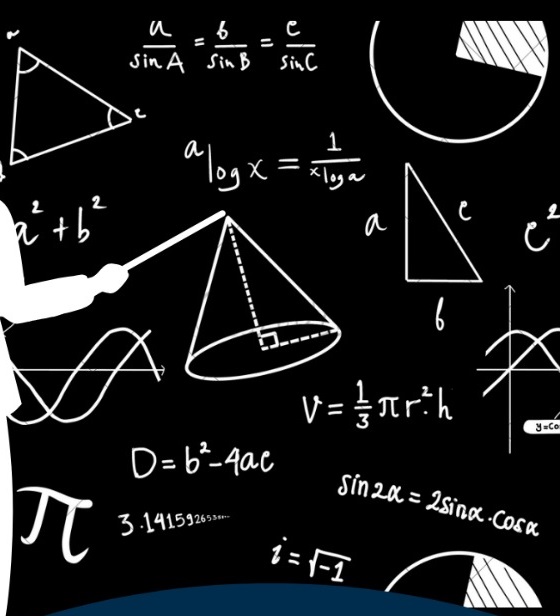 a/sin A = b/sin B = c/sin C
c
ᵃlog x = 1/ˣlog a
a² + b²
a
c
b
c²
V = 1/3 πr².h
y=Co
D = b²-4ac
sin2α = 2sinα.cosα
π
3.14159265
i = √-1